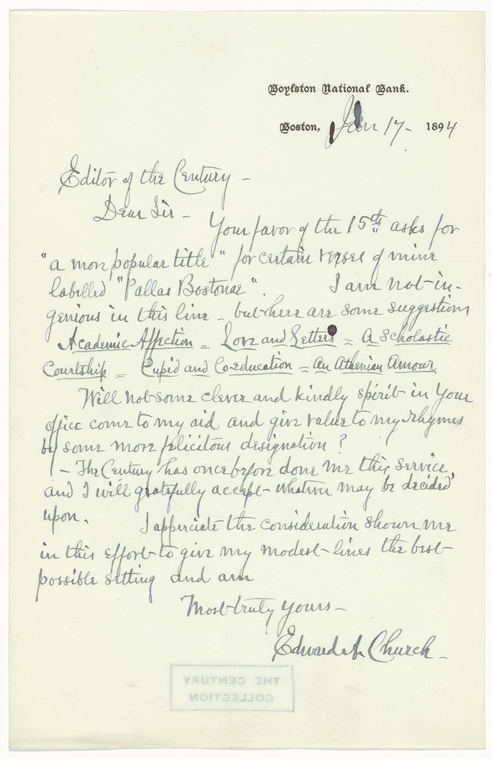 Boylston National Bank.
Boston, Jan 17 - 1894
Editor of the Century -
Dear Sir -
Your favor of the 15th asks for
"a more popular title" for certain verses of mine
labelled "Pallas Bostonae". I am not in-
genious in this line - but here are some suggestions
Academic Affection = Love and Letters = A Scholastic
Courtship = Cupid and Co-education = An Athenian Amour
Will not some clever and kindly spirit in your
office come to my aid and give value to my rhymes
by some more felicitous designation?
- The Century has once before done me this service,
and I will gratefully accept whatever may be decided
upon. I appreciate the consideration shown me
in this effort to give my modest lines the best
possible setting and am
Most truly yours -
Edward A. Church -
THE CENTURY
COLLECTION